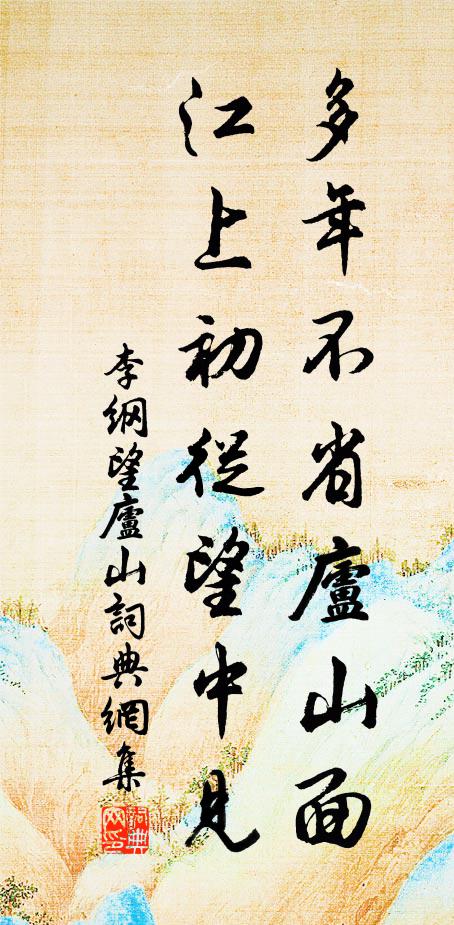 多年不省廬山面
江上初從望中見
李綱望廬山詞典網集
詞典網印